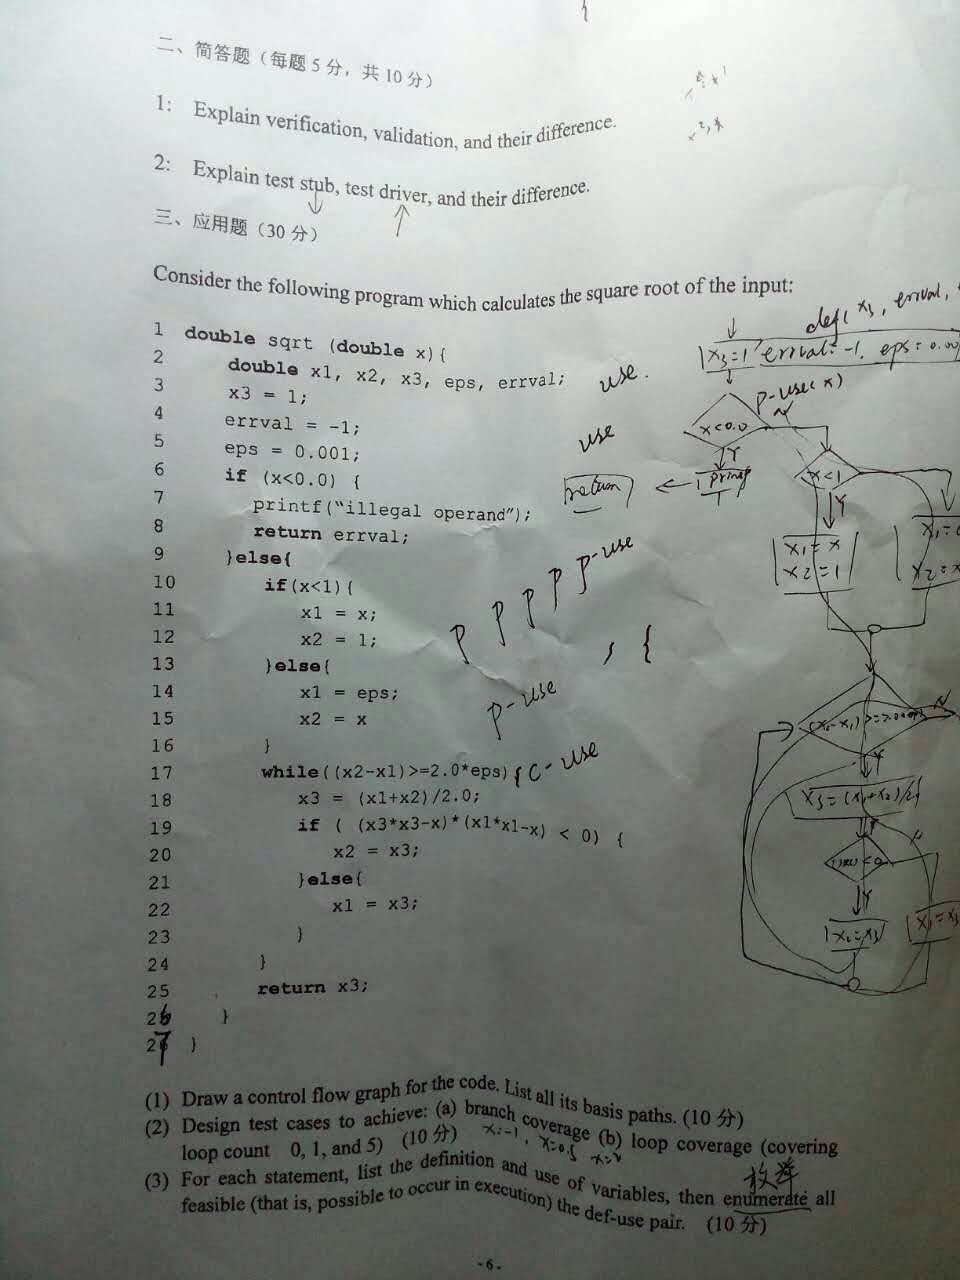 二、简答题（每题 5 分，共 10 分）
1: Explain verification, validation, and their difference.
2: Explain test stub, test driver, and their difference.
三、应用题（30 分）
Consider the following program which calculates the square root of the input:
1 double sqrt (double x){
2 double x1, x2, x3, eps, errval;
3 x3 = 1;
4 errval = -1;
5 eps = 0.001;
6 if (x<0.0) {
7 printf("illegal operand");
8 return errval;
9 }else{
10 if(x<1){
11 x1 = x;
12 x2 = 1;
13 }else{
14 x1 = eps;
15 x2 = x
16 }
17 while((x2-x1)>=2.0*eps){
18 x3 = (x1+x2)/2.0;
19 if ( (x3*x3-x)*(x1*x1-x) < 0) {
20 x2 = x3;
21 }else{
22 x1 = x3;
23 }
24 }
25 return x3;
26 }
27 }
def(x3, errval,
x3=1 errval=-1. eps=0.00
use.
p-use(x)
x<0.0
use
Y
return
printf
x<1
Y
x1=x
x2=1
x2=x
p-use
P P P P
, {
p-use
c-use
N
Y
x3=(x1+x2)/2.
Y
x2=x3
x1=x3
(1) Draw a control flow graph for the code. List all its basis paths. (10 分)
(2) Design test cases to achieve: (a) branch coverage (b) loop coverage (covering
loop count 0, 1, and 5) (10 分)
x=-1, x=0.5
(3) For each statement, list the definition and use of variables, then enumerate all
feasible (that is, possible to occur in execution) the def-use pair. (10 分)
枚举
- 6 -